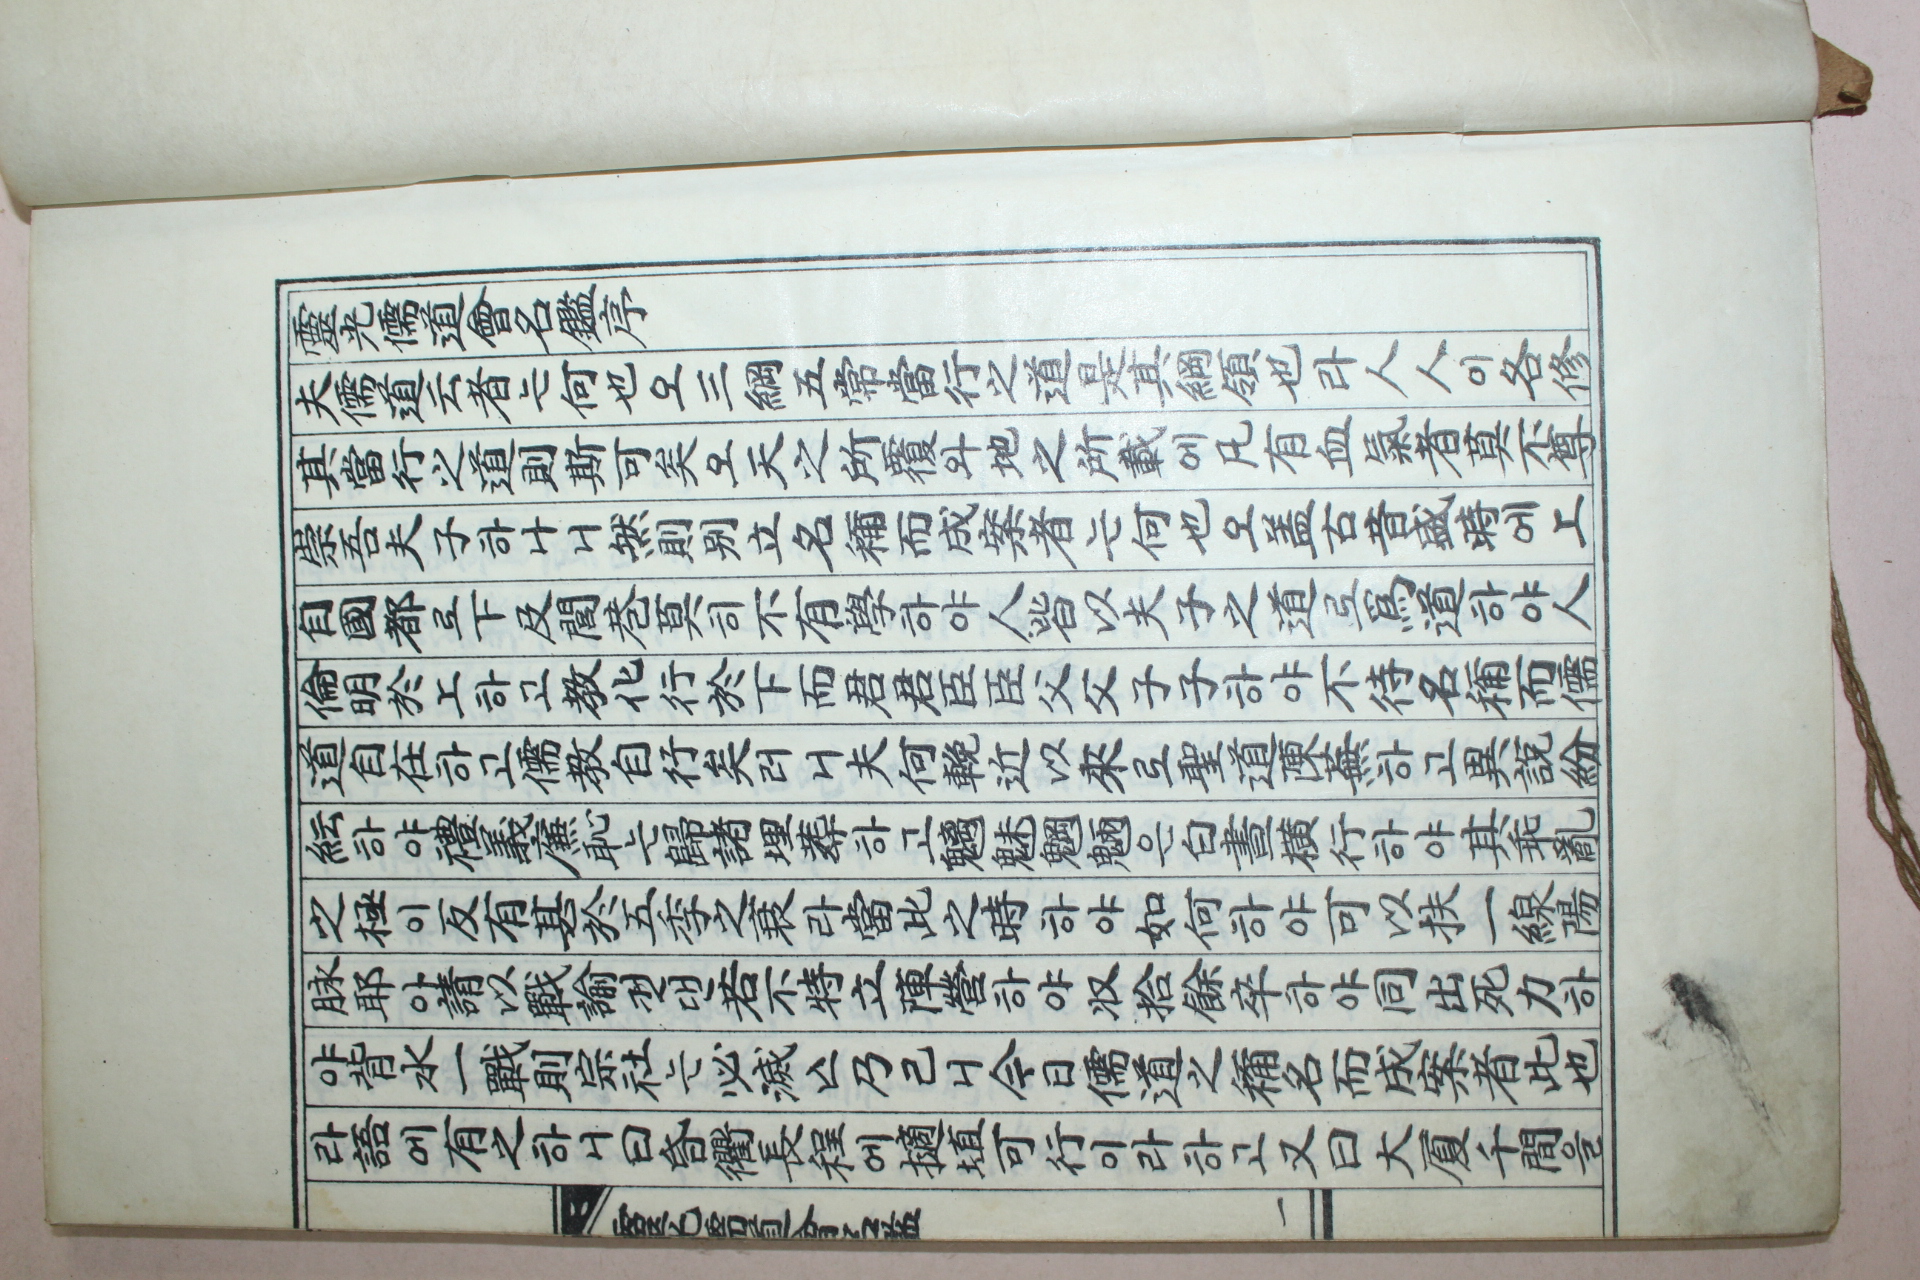 靈光儒道會名鑑序
夫儒道云者는何也오三綱五常當行之道是其綱領也라人人이各修
其當行之道則斯可矣오天之所覆와地之所載에凡有血氣者莫不尊
崇吾夫子하나니然則別立名稱而成案者는何也오盖古昔盛時에上
自國都로下及閭巷莫히不有學하야人皆以夫子之道로爲道하야人
倫明於上하고敎化行於下而君君臣臣父父子子하야不待名稱而儒
道自在하고儒敎自行矣러니夫何輓近以來로聖道陳蕪하고異說紛
紜하야禮義廉恥는歸諸埋葬하고魑魅魍魎은白晝橫行하야其乖亂
之極이反有甚於五季之衰라當此之時하야如何하야可以扶一線陽
脉耶아請以戰諭컨댄若不特立陣營하야收拾餘卒하야同出死力하
야背水一戰則宗社는必滅乃已니今日儒道之稱名而成案者此也
라語에有之하니曰昏衢長程에擿埴可行이라하고又曰大厦千間은
靈光儒道會名鑑
一